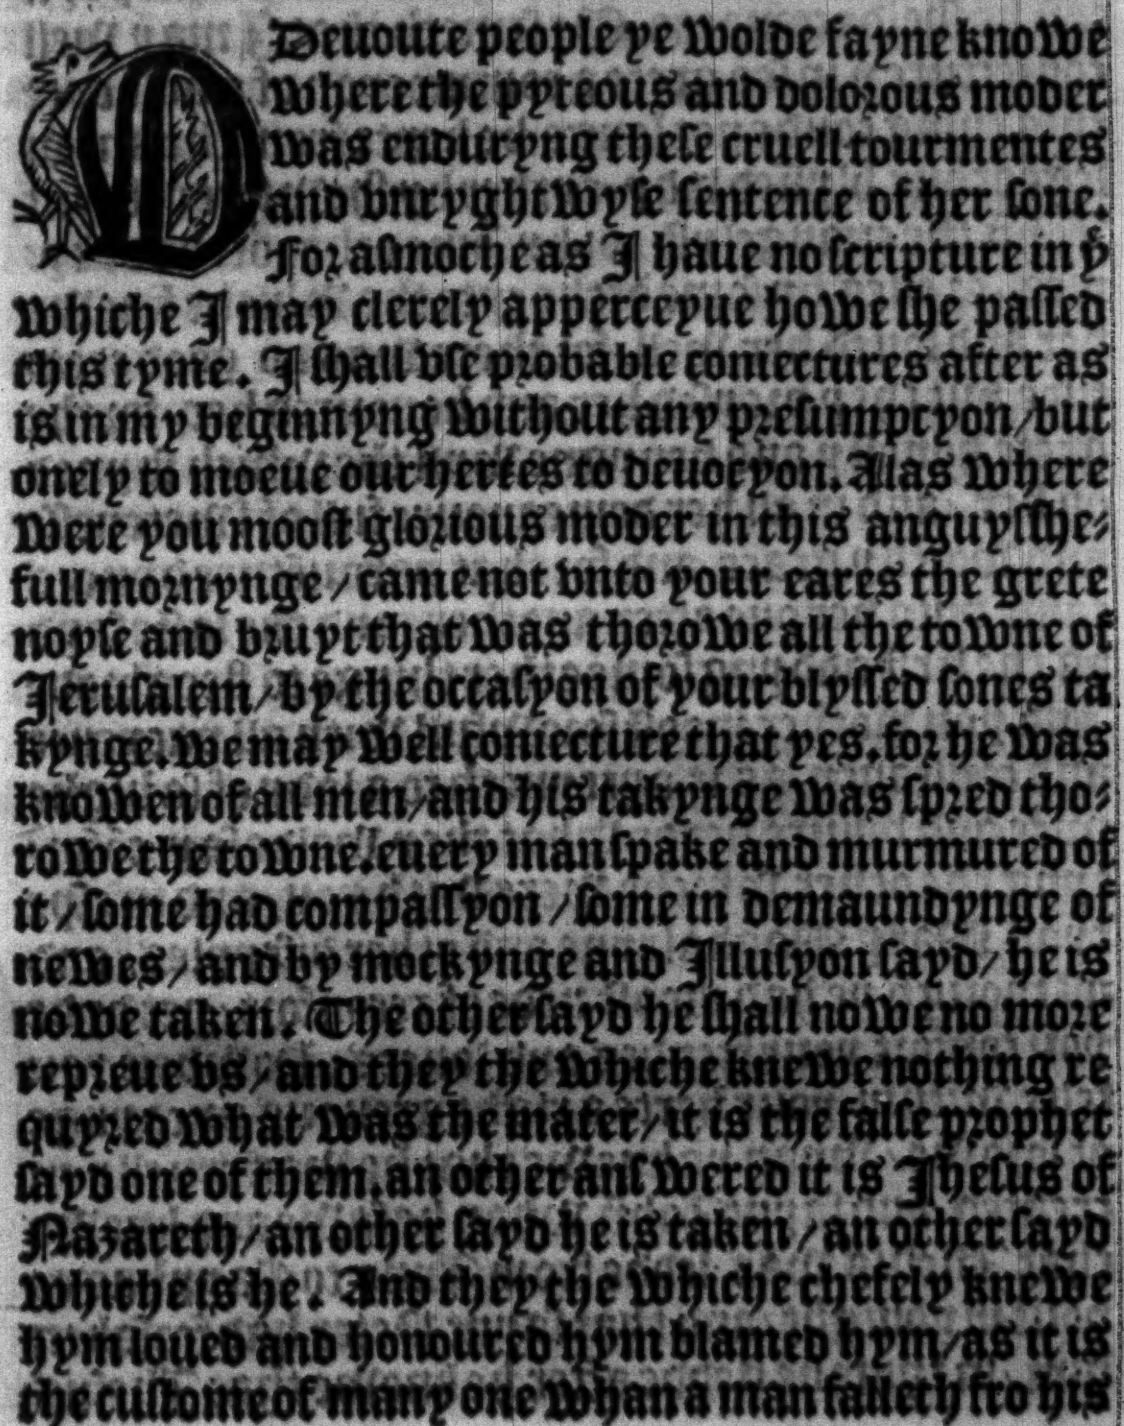 O Deuoute people ye wolde fayne knowe
where the pyteous and dolorous moder
was enduryng these cruell tourmentes
and vnryghtwyse sentence of her sone.
For asmoche as I haue no scripture in yͤ
whiche I may clerely apperceyue howe she passed
this tyme. I shall vse probable coniectures after as
is in my beginnyng without any presumpcyon/but
onely to moeue our hertes to deuocyon. Alas where
were you moost glorious moder in this anguysshe⸗
full mornynge/came not vnto your eares the grete
noyse and bruyt that was thorowe all the towne of
Jerusalem/by the occasyon of your blyssed sones ta
kynge. we may well coniecture that yes. for he was
knowen of all men/and his takynge was spred tho⸗
rowe the towne. euery man spake and murmured of
it/some had compassyon/some in demaundynge of
newes/and by mockynge and Illusyon sayd/he is
nowe taken. The other sayd he shall nowe no more
repreue vs/and they the whiche knewe nothing re
quyred what was the mater/it is the false prophet
sayd one of them. an other answered it is Jhesus of
Nazareth/an other sayd he is taken/an other sayd
whiche is he. And they the whiche chefely knewe
hym loued and honoured hym blamed hym/as it is
the custome of many one whan a man falleth fro his